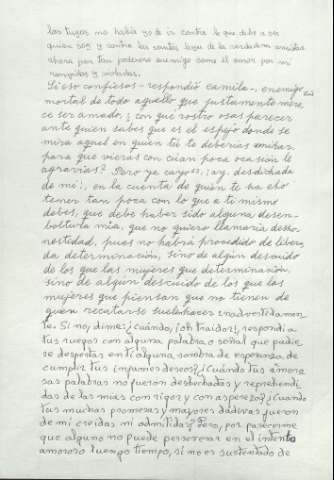 los tuyos no había yo de ir contra lo que debo a ser
quien soy y contra las santas leyes de la verdadera amistad
ahora por tan poderoso enemigo como el amor por mi
rompidas y violadas.
Si eso confiesas - respondió camila -, enemigo
mortal de todo aquello que justamente mere
ce ser amado, ¿con que rostro osas parecer
ante quien sabes que es el espejo donde se
mira aquel en quien tú te deberías mirar,
para que vieras con cúan poca ocasión le
agravias? Pero ya cayo, ¡ay, desdichada
de mi!, en la cuenta de quien te ha echo
tener tan poca con lo que a ti mismo
debes, que debe haber sido alguna desen-
boltura mia, que no quiero llamarla desho
nestidad, pues no habrá procedido de libera
da determinación, sino de algún descuido
de los que las mujeres que determinación,
sino de algun descuido de los que las
mujeres que piensan que no tienen de
quien recatarse suelen hacer inadvertidamen
te. Si no, dime: ¿cuándo, ¡oh traidor!, respondi a
tus ruegos con alguna palabra o señal que pudie
se despertar en ti alguna sombra de esperanza de
cumplir tus infames deseos? ¿Cuándo tus amoro
sas palabras no fueron deshechadas y reprehendi
das de las mias con rigor y con aspereza? ¿Cuando
tus muchas promesas y mayores dádivas fueron
de mi creidas ni admitidas? Pero, por parecerme
que alguno no puede perseverar en el intento
amoroso luengo tiempo, si no es sustentado de